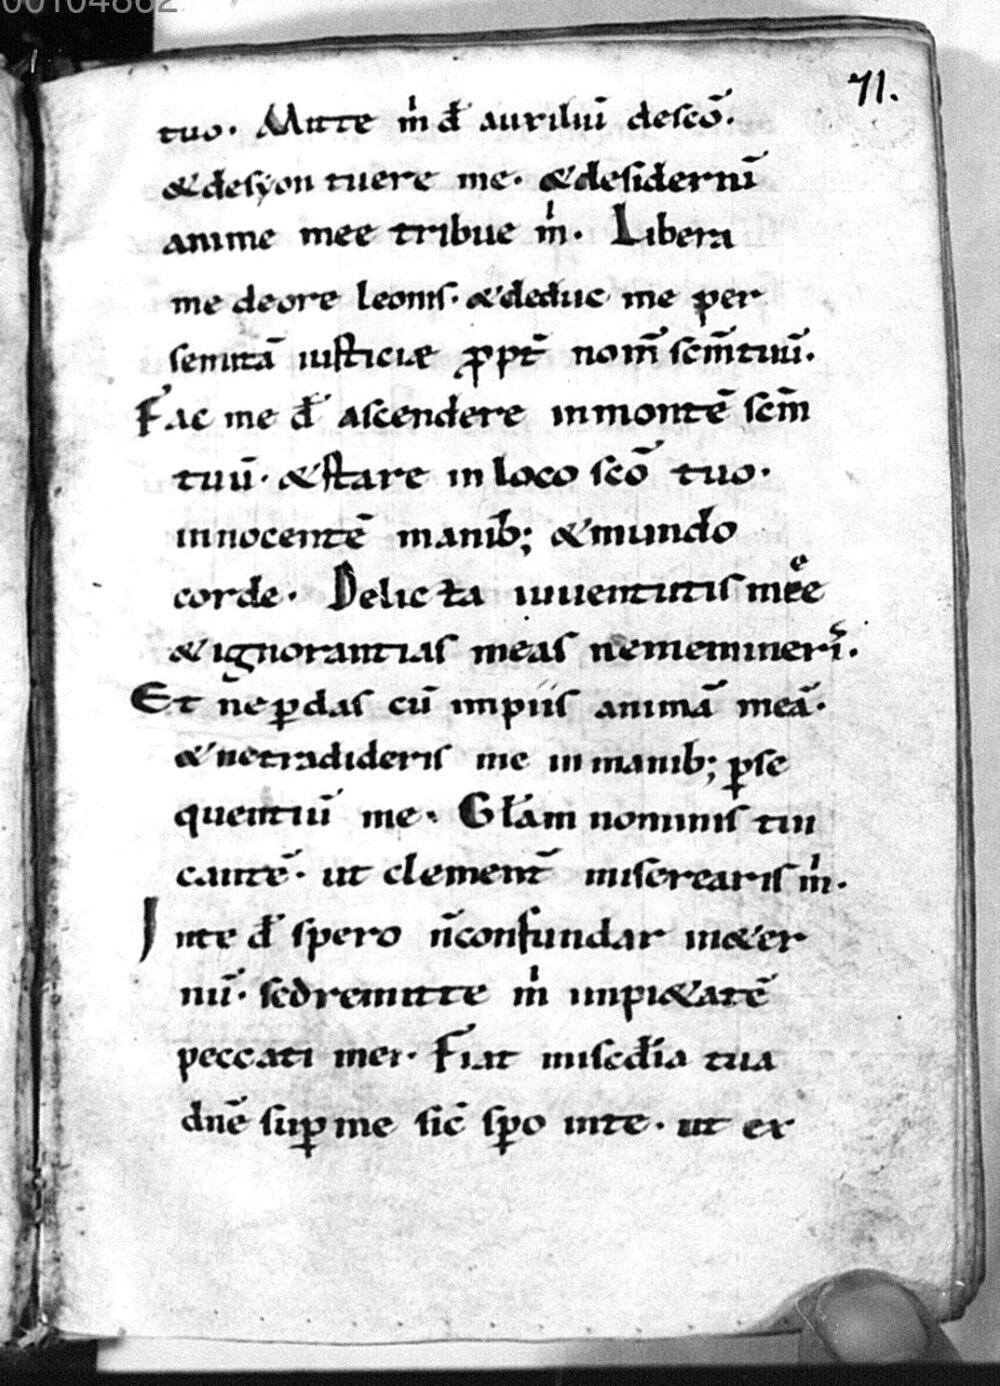 00104862
71.
tuo. Mitte m̍ d̄s auxiliū descō.
&desyon tuere me. &desideriū
anime mee tribue m̍. Libera
me deore leonis. &deduc me per
semitā iusticiæ ꝓpt̄ nom̄ scm̄tuū.
Fac me d̄s ascendere inmontē scm̄
tuū. &stare in loco scō tuo.
innocentē manib; &mundo
corde. Delicta iuuentutis meę
&ignorantias meas nememineri᷒.
Et nēꝑdas cū impiis animā meā.
&netradideris me in manib; ꝑse
quentiū me. Gl̄am nominis tui
cantē. ut clement̄ miserearis m̍.
Inte d̄s spero n̄confundar in&er
nū. sedremitte m̍ impi&atē
peccati mei. Fiat misc̄dia tua
dn̄e suꝑ me sic̄ sꝑo inte. ut ex